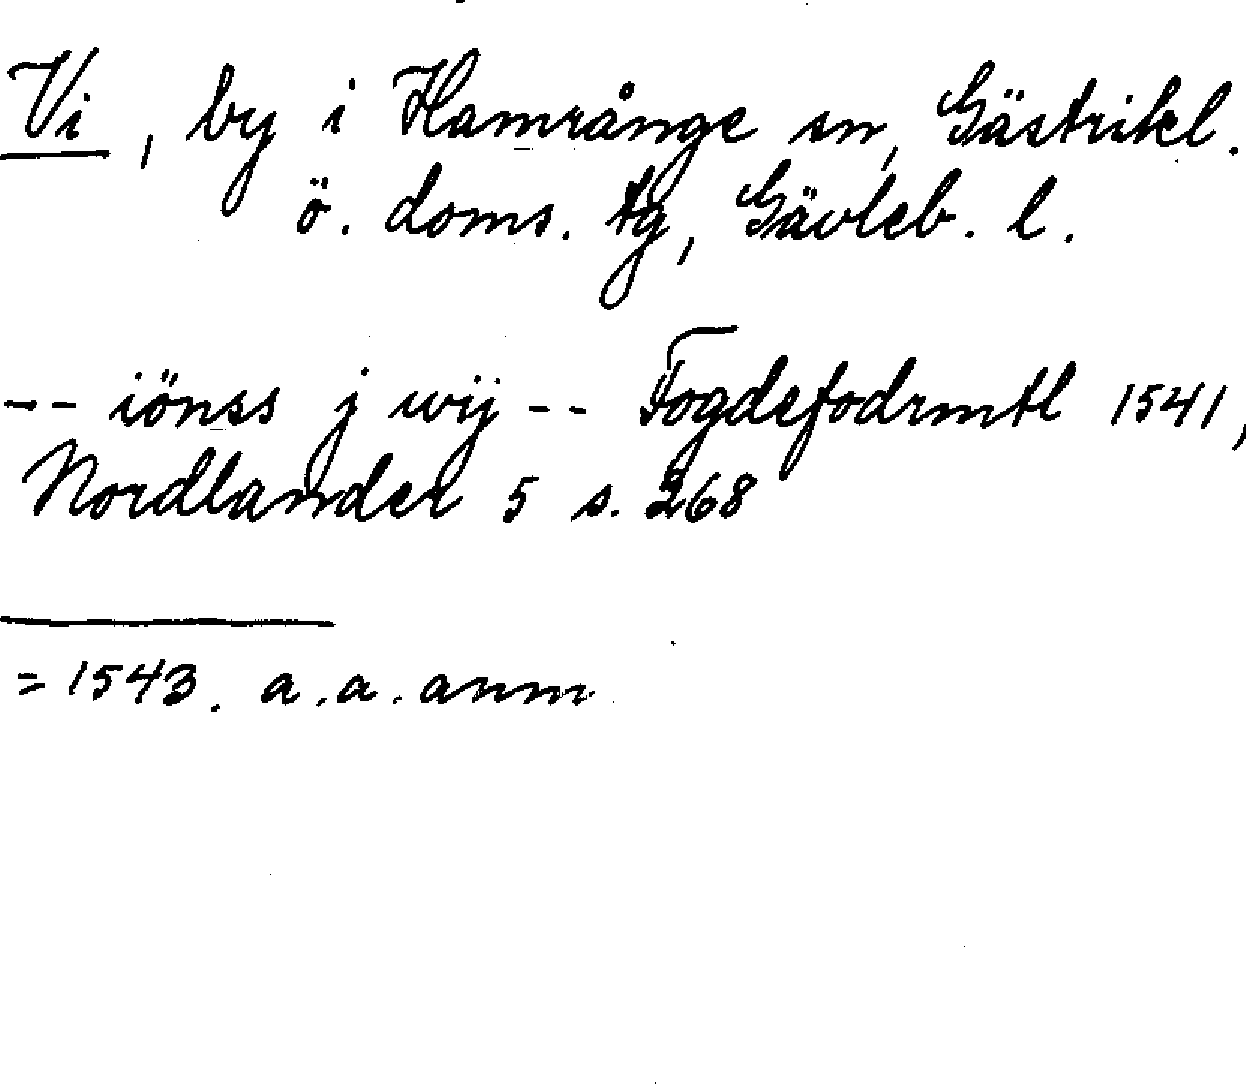 Vi, by i Hamrånge sn, Gästrikl.
ö. doms. tg, Gävleb. l.
-- iönss j wij -- Fogdefodrmtl 1541,
Nordlander 5 s. 268
= 1543. a.a. anm.